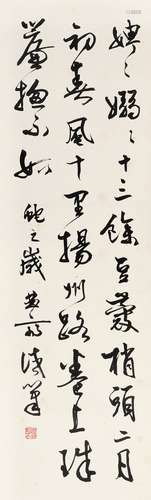 娉〻嫋〻十三餘豆蔻梢頭二月
初春風十里揚州路卷上珠
簾總不如 蛇之歲 黃